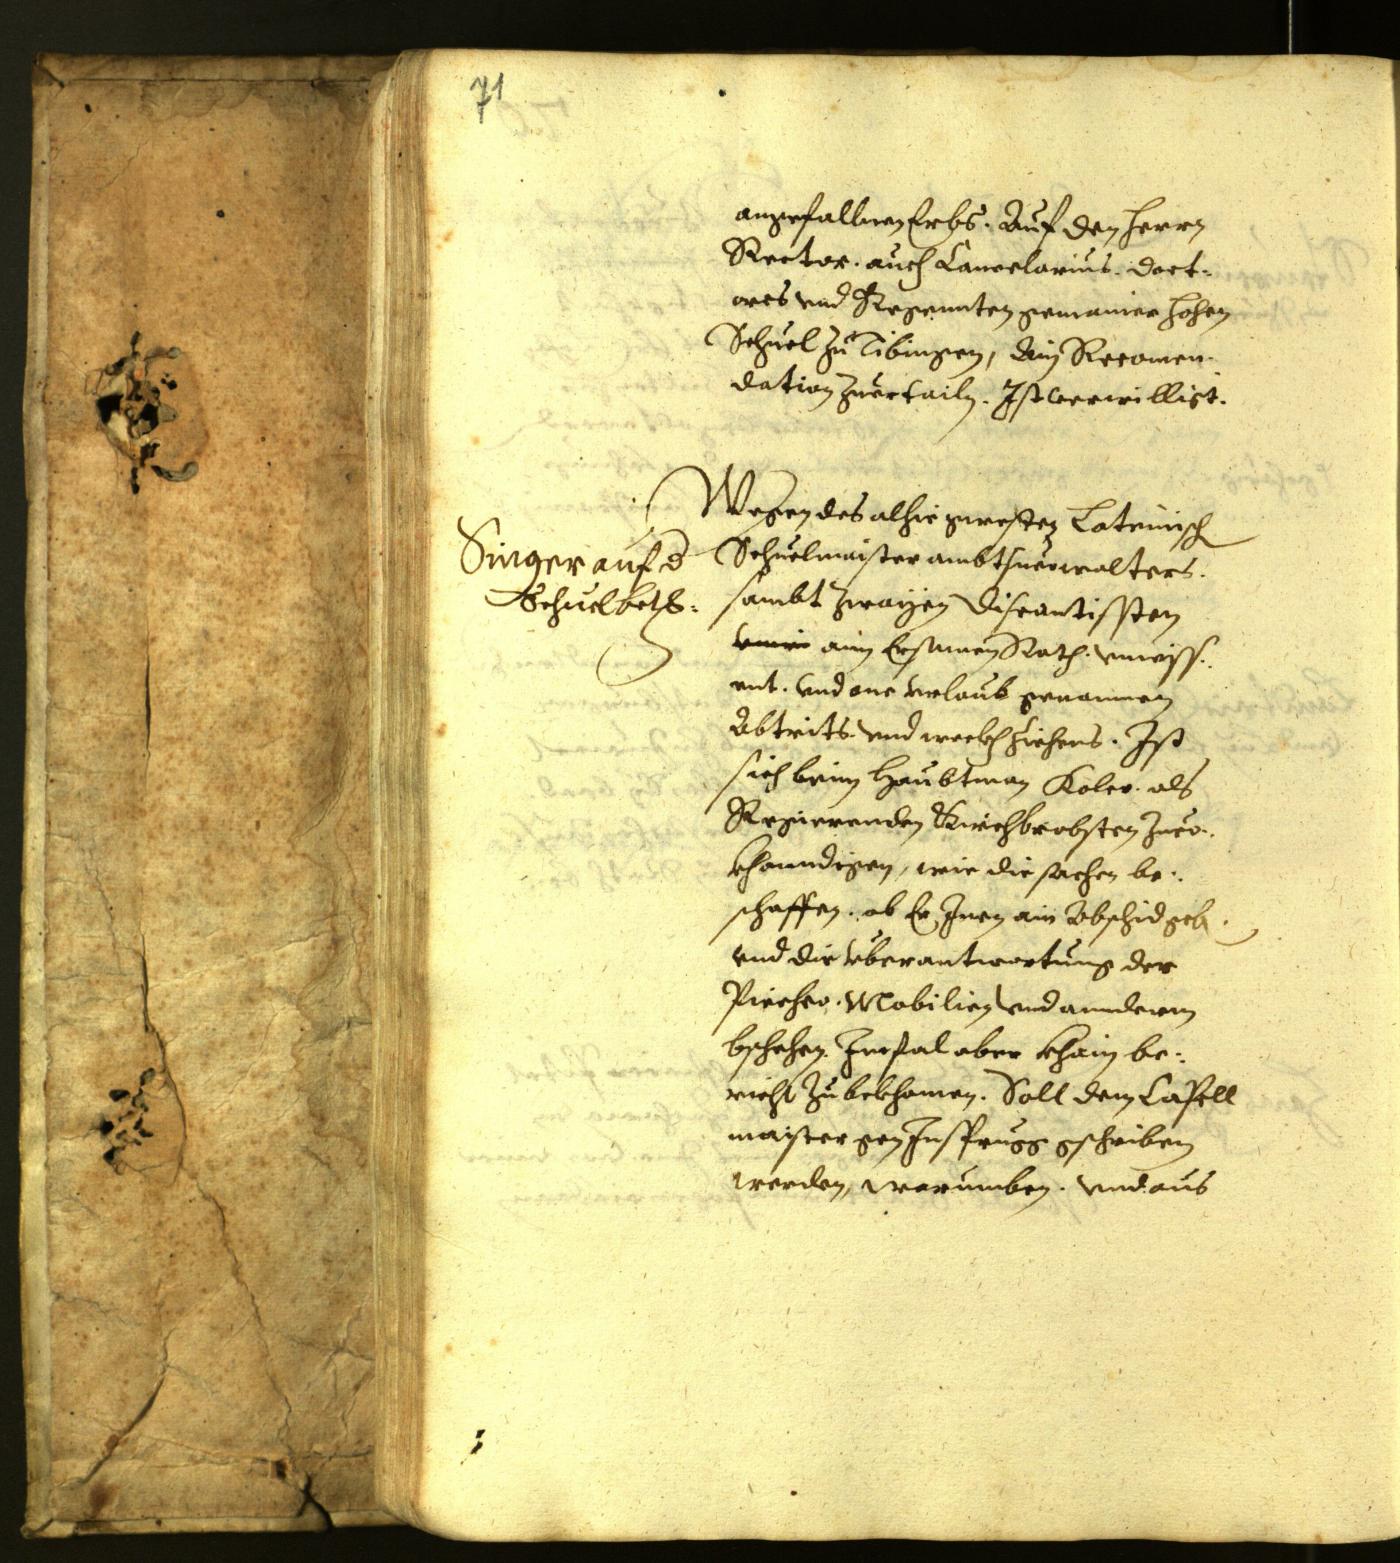 71
angefallnen Erbs. Auf den Herrn
Rector. auch Cancelarius. Doct-
ores vnd Regennten gemainer Hohen
Schuel zu Tibingen, Ain Recomen-
dation zuertailn. Ist verwilligt.
Singer auf d
Schuel betr.
Wegen des alhie gwesten Lateinisch
Schuelmaister ambtsuerwalters.
sambt zwayen Discantissten
ain Ersamen Rath. vnwiss-
ent. vnd one vrlaub genomnen
Abtrits. vnd weckh ziehens. Ist
sich beim Haubtman Koler. als
Regierenden Kirchbrobsten zuer-
khunndigen, wie die sachen be-
schaffen. ob Er Inen ain Abschid geb.
vnd die vberantwortung der
Piecher. Mobilien vnd annderm
bschehen. Im fal aber khain be-
richt zubekhomen. Soll dem Capell
maister gen Insprugg gschriben
werden, warumben. vnd aus